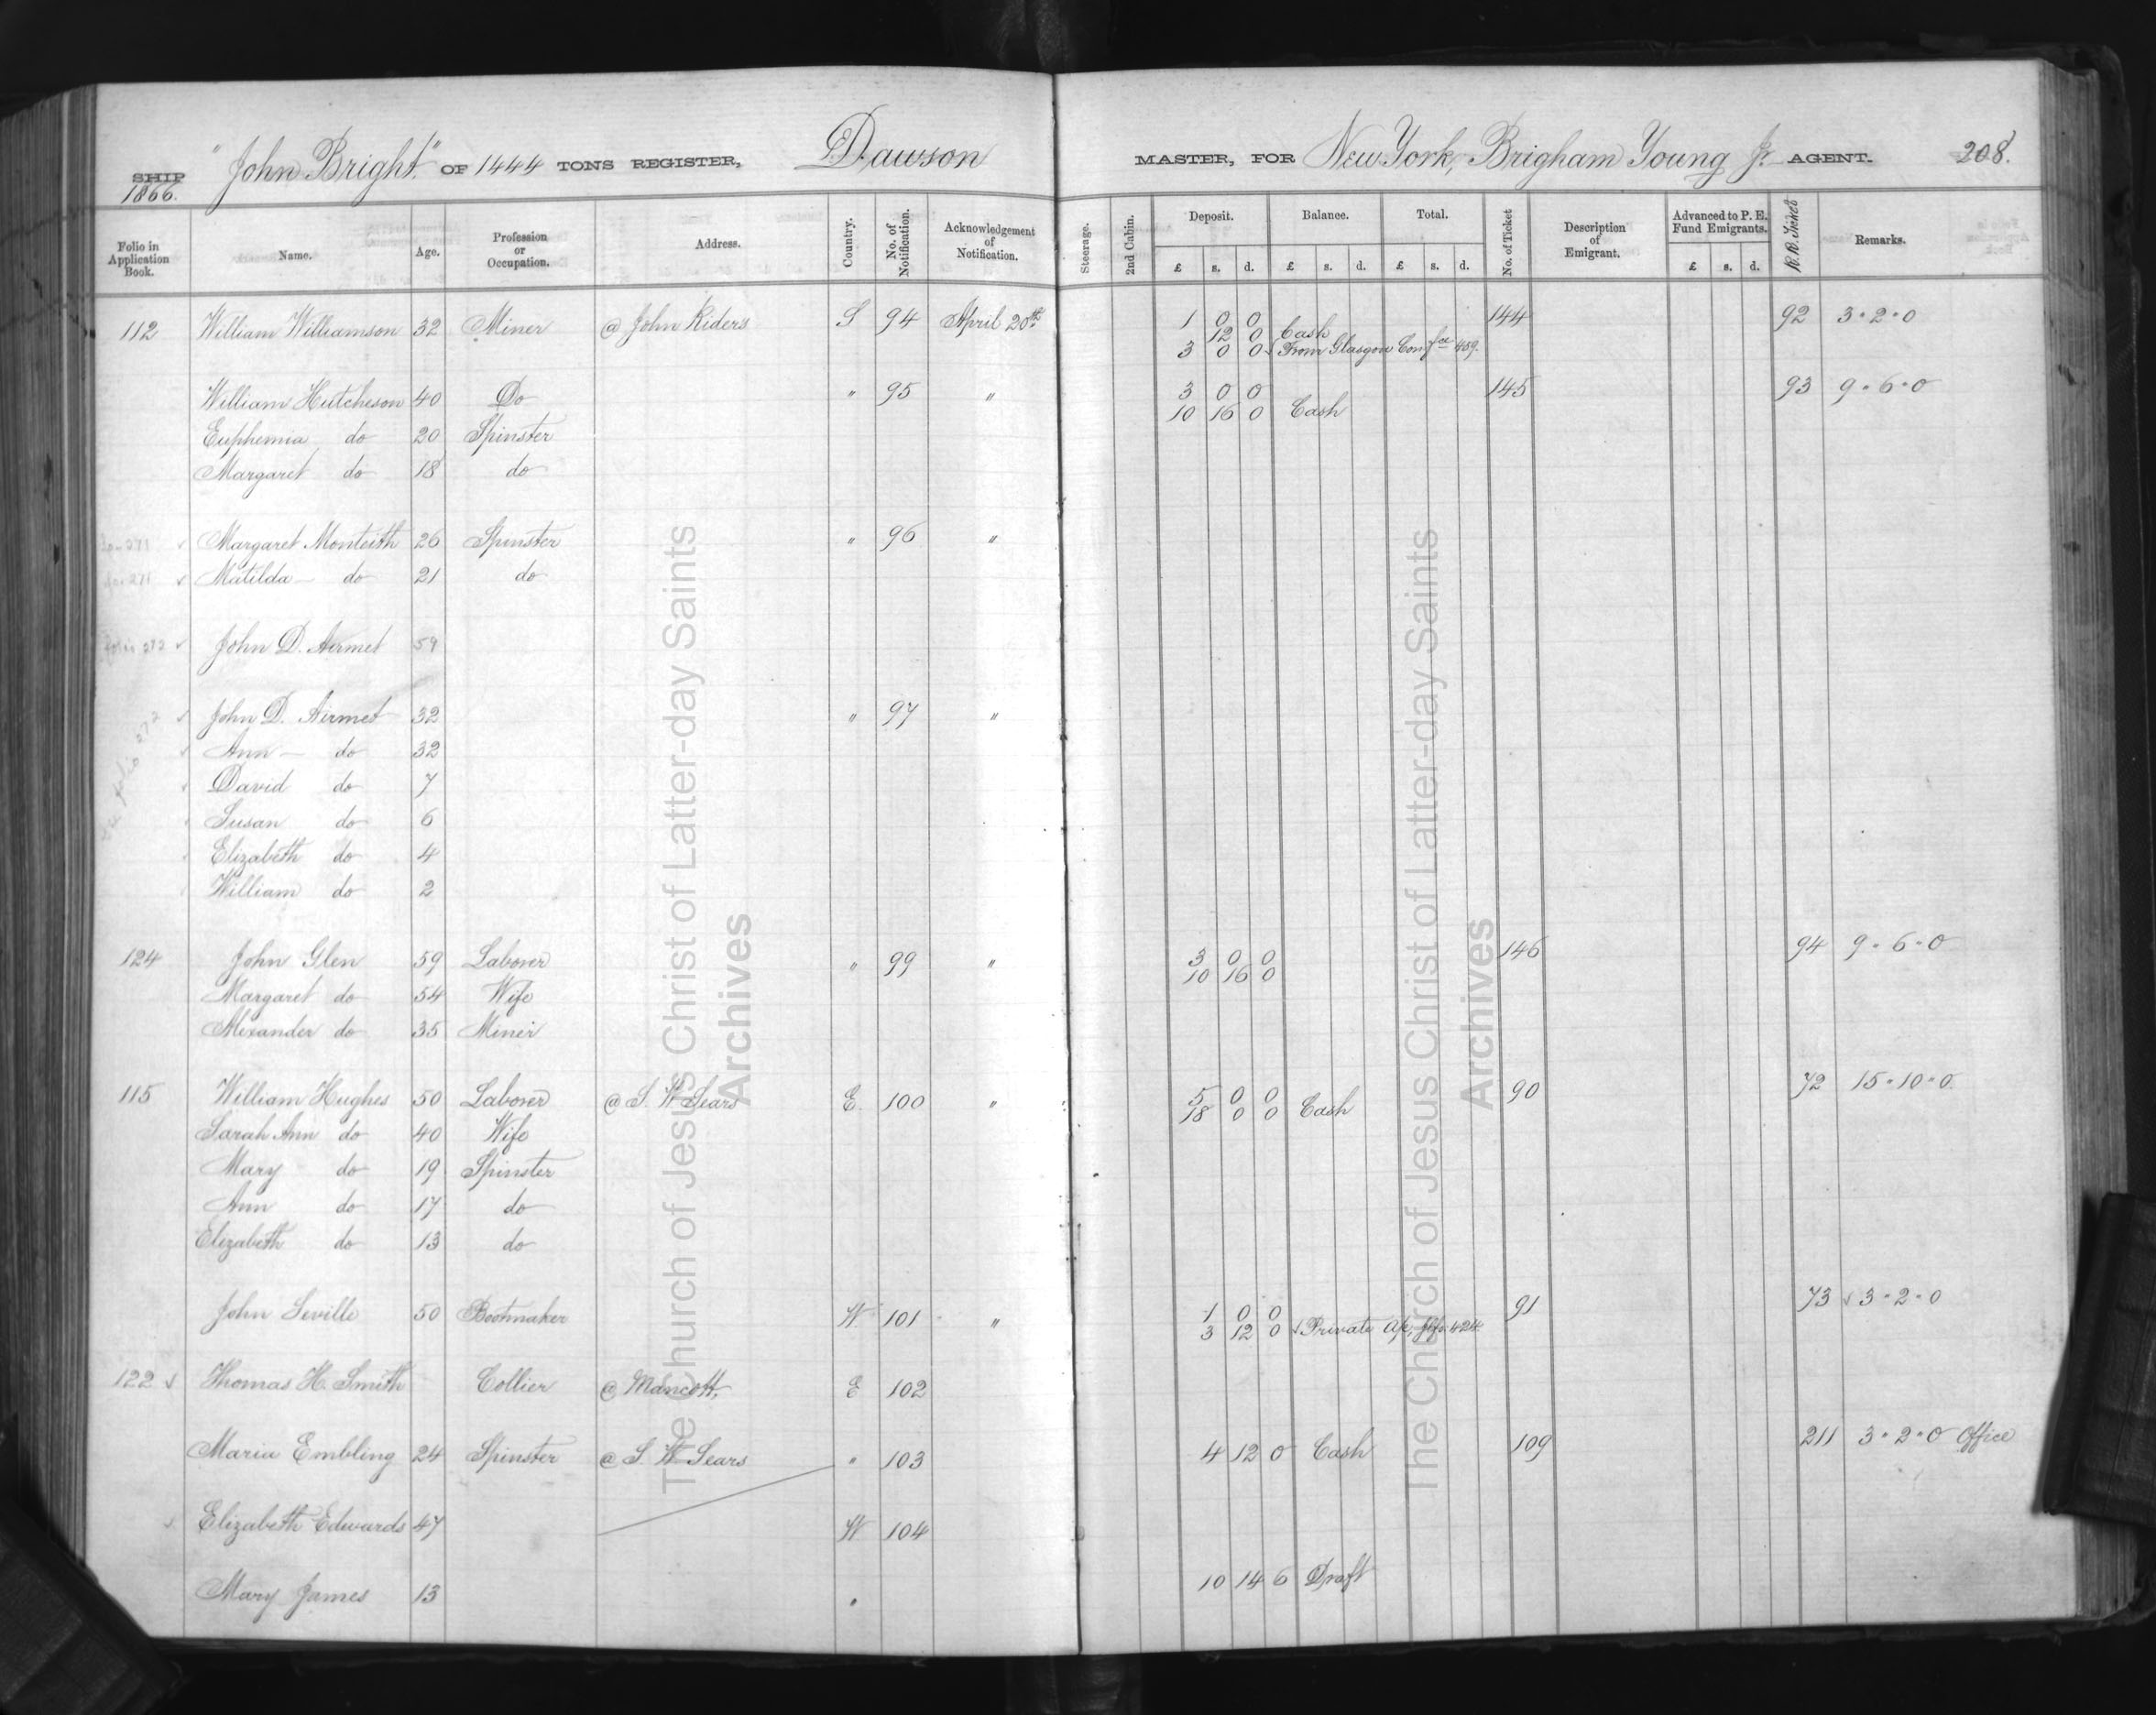 SHIP "John Bright" OF 1444 TONS REGISTER, Dawson MASTER, FOR New York, Brigham Young Jr AGENT. 208.
1866.
Folio in Application Book. Name. Age. Profession or Occupation. Address. Country. No. of Notification. Acknowledgement of Notification. Steerage. 2nd Cabin. Deposit. £ s. d. Balance. £ s. d. Total. £ s. d. No. of Ticket Description of Emigrant. Advanced to P. E. Fund Emigrants. £ s. d. R.R. Ticket Remarks.
112 William Williamson 32 Miner @ John Riders S 94 April 20th 1 0 0 144 92 3 - 2 - 0
12 0 Cash
3 0 0 From Glasgow Confce 459.
William Hutcheson 40 Do " 95 " 3 0 0 145 93 9 - 6 - 0
10 16 0 Cash
Euphemia do 20 Spinster
Margaret do 18 do
do 271 Margaret Monteith 26 Spinster " 96 "
do 271 Matilda do 21 do
folio 272 John D. Airmet 59
John D. Airmet 32 " 97 "
Ann do 32
folio 272
David do 7
Susan do 6
Elizabeth do 4
William do 2
124 John Glen 59 Laborer " 99 " 3 0 0 146 94 9 - 6 - 0
10 16 0
Margaret do 54 Wife
Alexander do 35 Miner
115 William Hughes 50 Laborer @ S. W Sears E. 100 " 5 0 0 90 72 15 - 10 - 0
18 0 0 Cash
Sarah Ann do 40 Wife
Mary do 19 Spinster
Ann do 17 do
Elizabeth do 13 do
John Seville 50 Bootmaker W. 101 " 1 0 0 91 73 3 - 2 - 0
3 12 0 Private 424
122 Thomas H. Smith Collier @ Mancott, E 102
Maria Embling 24 Spinster @ S. W Sears " 103 4 12 0 Cash 109 211 3 - 2 - 0 Office
Elizabeth Edwards 47 W 104
Mary James 13 " 10 14 6 Draft
The Church of Jesus Christ of Latter-day Saints
Archives
The Church of Jesus Christ of Latter-day Saints
Archives